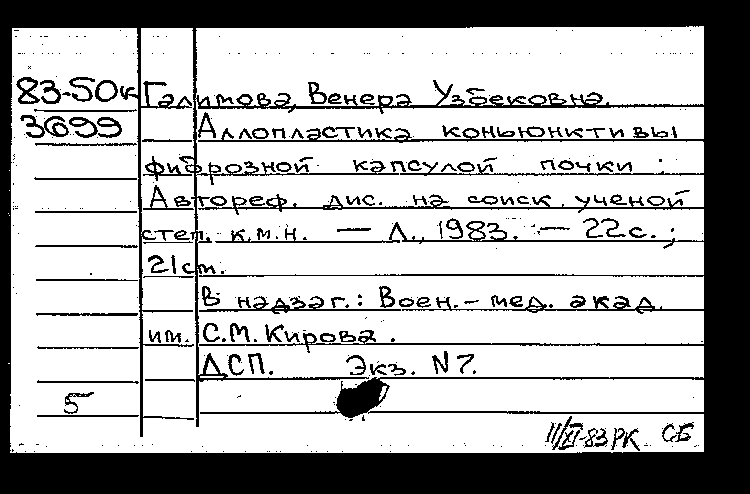 83-50к Галимова, Венера Узбековна.
3699 Аллопластика коньюнктивы
фиброзной капсулой почки :
Автореф. дис. на соиск. ученой
степ. к.м.н. — Л., 1983. — 22с. ;
21см.
В надзаг.: Воен.-мед. акад.
им. С.М. Кирова.
ДСП. Экз. N 7.
5
11/XI-83 РК СБ